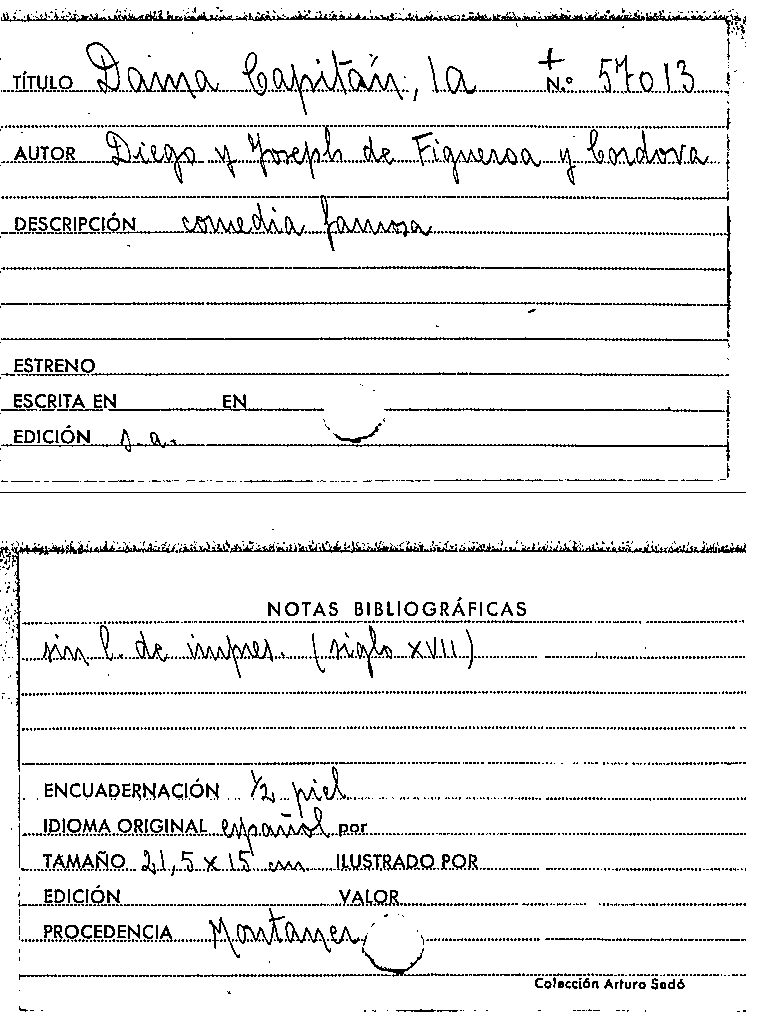 TÍTULO Dama Capitán, la + N.º 57013
AUTOR Diego y Joseph de Figueroa y Cordova
DESCRIPCIÓN comedia famosa
ESTRENO
ESCRITA EN EN
EDICIÓN s.a.
NOTAS BIBLIOGRÁFICAS
sin l. de impres. (siglo XVII)
ENCUADERNACIÓN ½ piel
IDIOMA ORIGINAL español por
TAMAÑO 21,5 x 15 cm ILUSTRADO POR
EDICIÓN VALOR
PROCEDENCIA Montaner
Colección Arturo Sedó